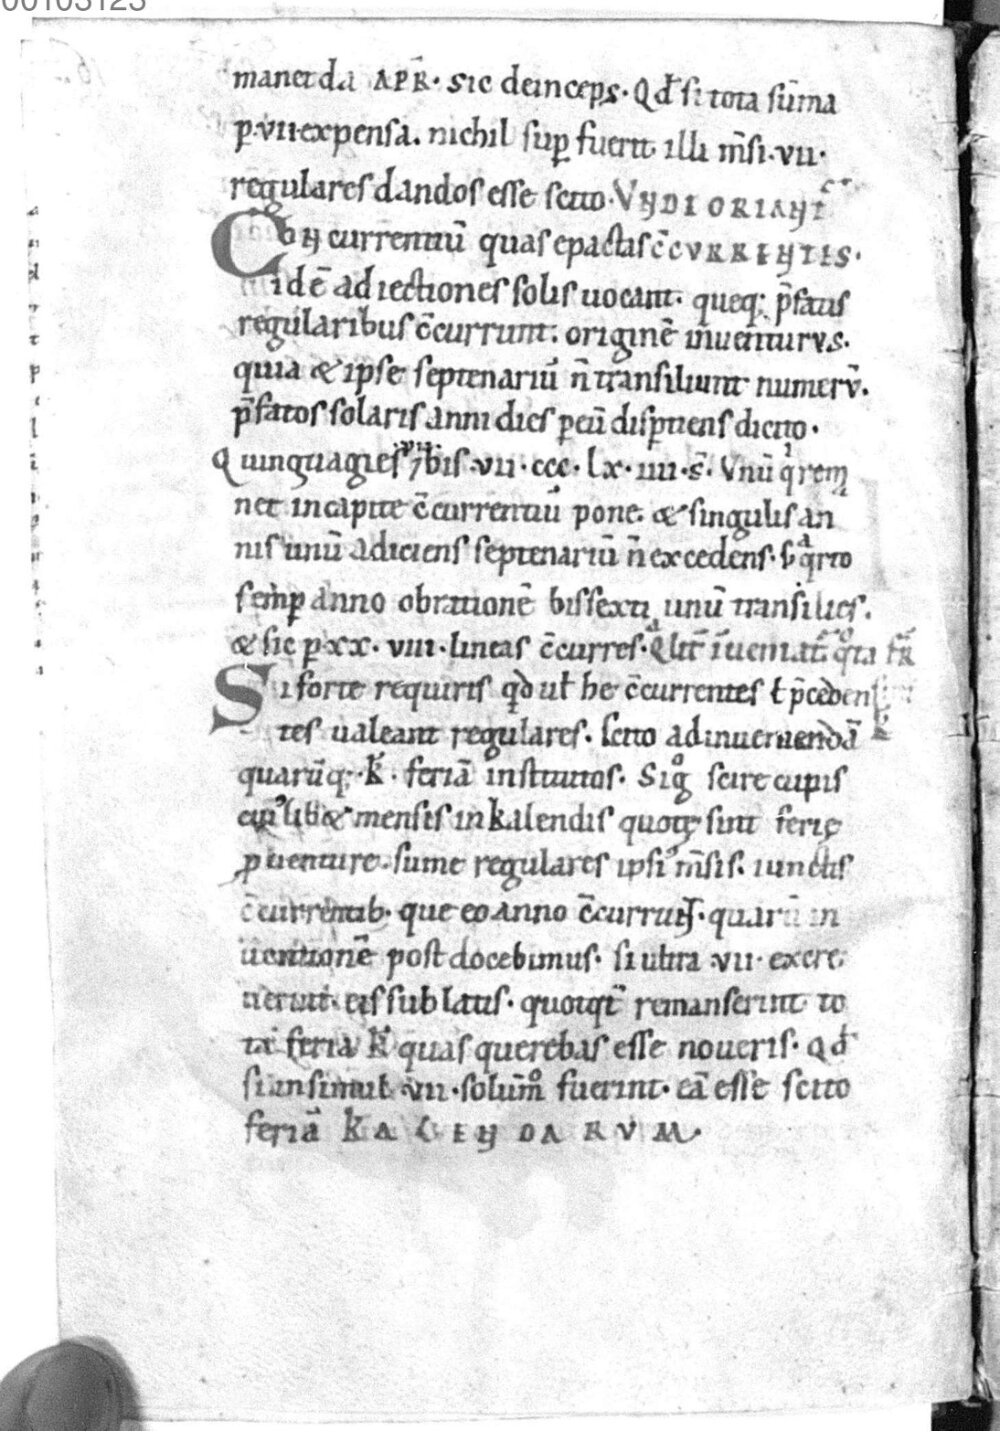 00103123
manet da APR̄· sic deinceps· Qđ si tota sūma
ꝑ·vii·expensa. nichil suꝑ fuerit illi m̄si·vii·
regulares dandos esse scito· VNDE ORIANT̄
Con currentiū quas epactas c̄CVRRENTES·
idē adiectiones solis uocant· queq; p̄fatis
regularibus c̄currunt: originē inuenturus·
quia & ipse septenariū n̄ transiliunt numerū·
p̄fatos solaris anni dies ꝑ eū disꝑtiens dicito·
Quinquagies ⁊ bis·vii·ccc·lx·iiii·s̄· Vnū
net in capite c̄currentiū pone· & singulis an
nis unū adiciens septenariū n̄ excedens·
semꝑ anno ob rationē bissexti unū transilies·
& sic ꝑ xx·viii·lineas c̄curres·
Si forte requiris qđ uł he c̄currentes ł p̄ceden
tes ualeant regulares· scito ad inueniendā
quarūq;·k̄· feriā institutos· Sigͦ scire cupis
cuiꝰlib& mensis in kalendis quotę sint ferię
ꝓuenture· sume regulares ipsiꝰ m̄sis· iunctis
c̄currentib· que eo anno c̄currunt·quarū in
uentionē post docebimus· si ultra·vii·excre
uerint·eis sublatis· quotqt̄ remanserint to
tā feriā k̄ quas querebas esse noueris· Qđ
si insimul·vii·solūmͦ fuerint· eā esse scito
feriā KALENDARVM·